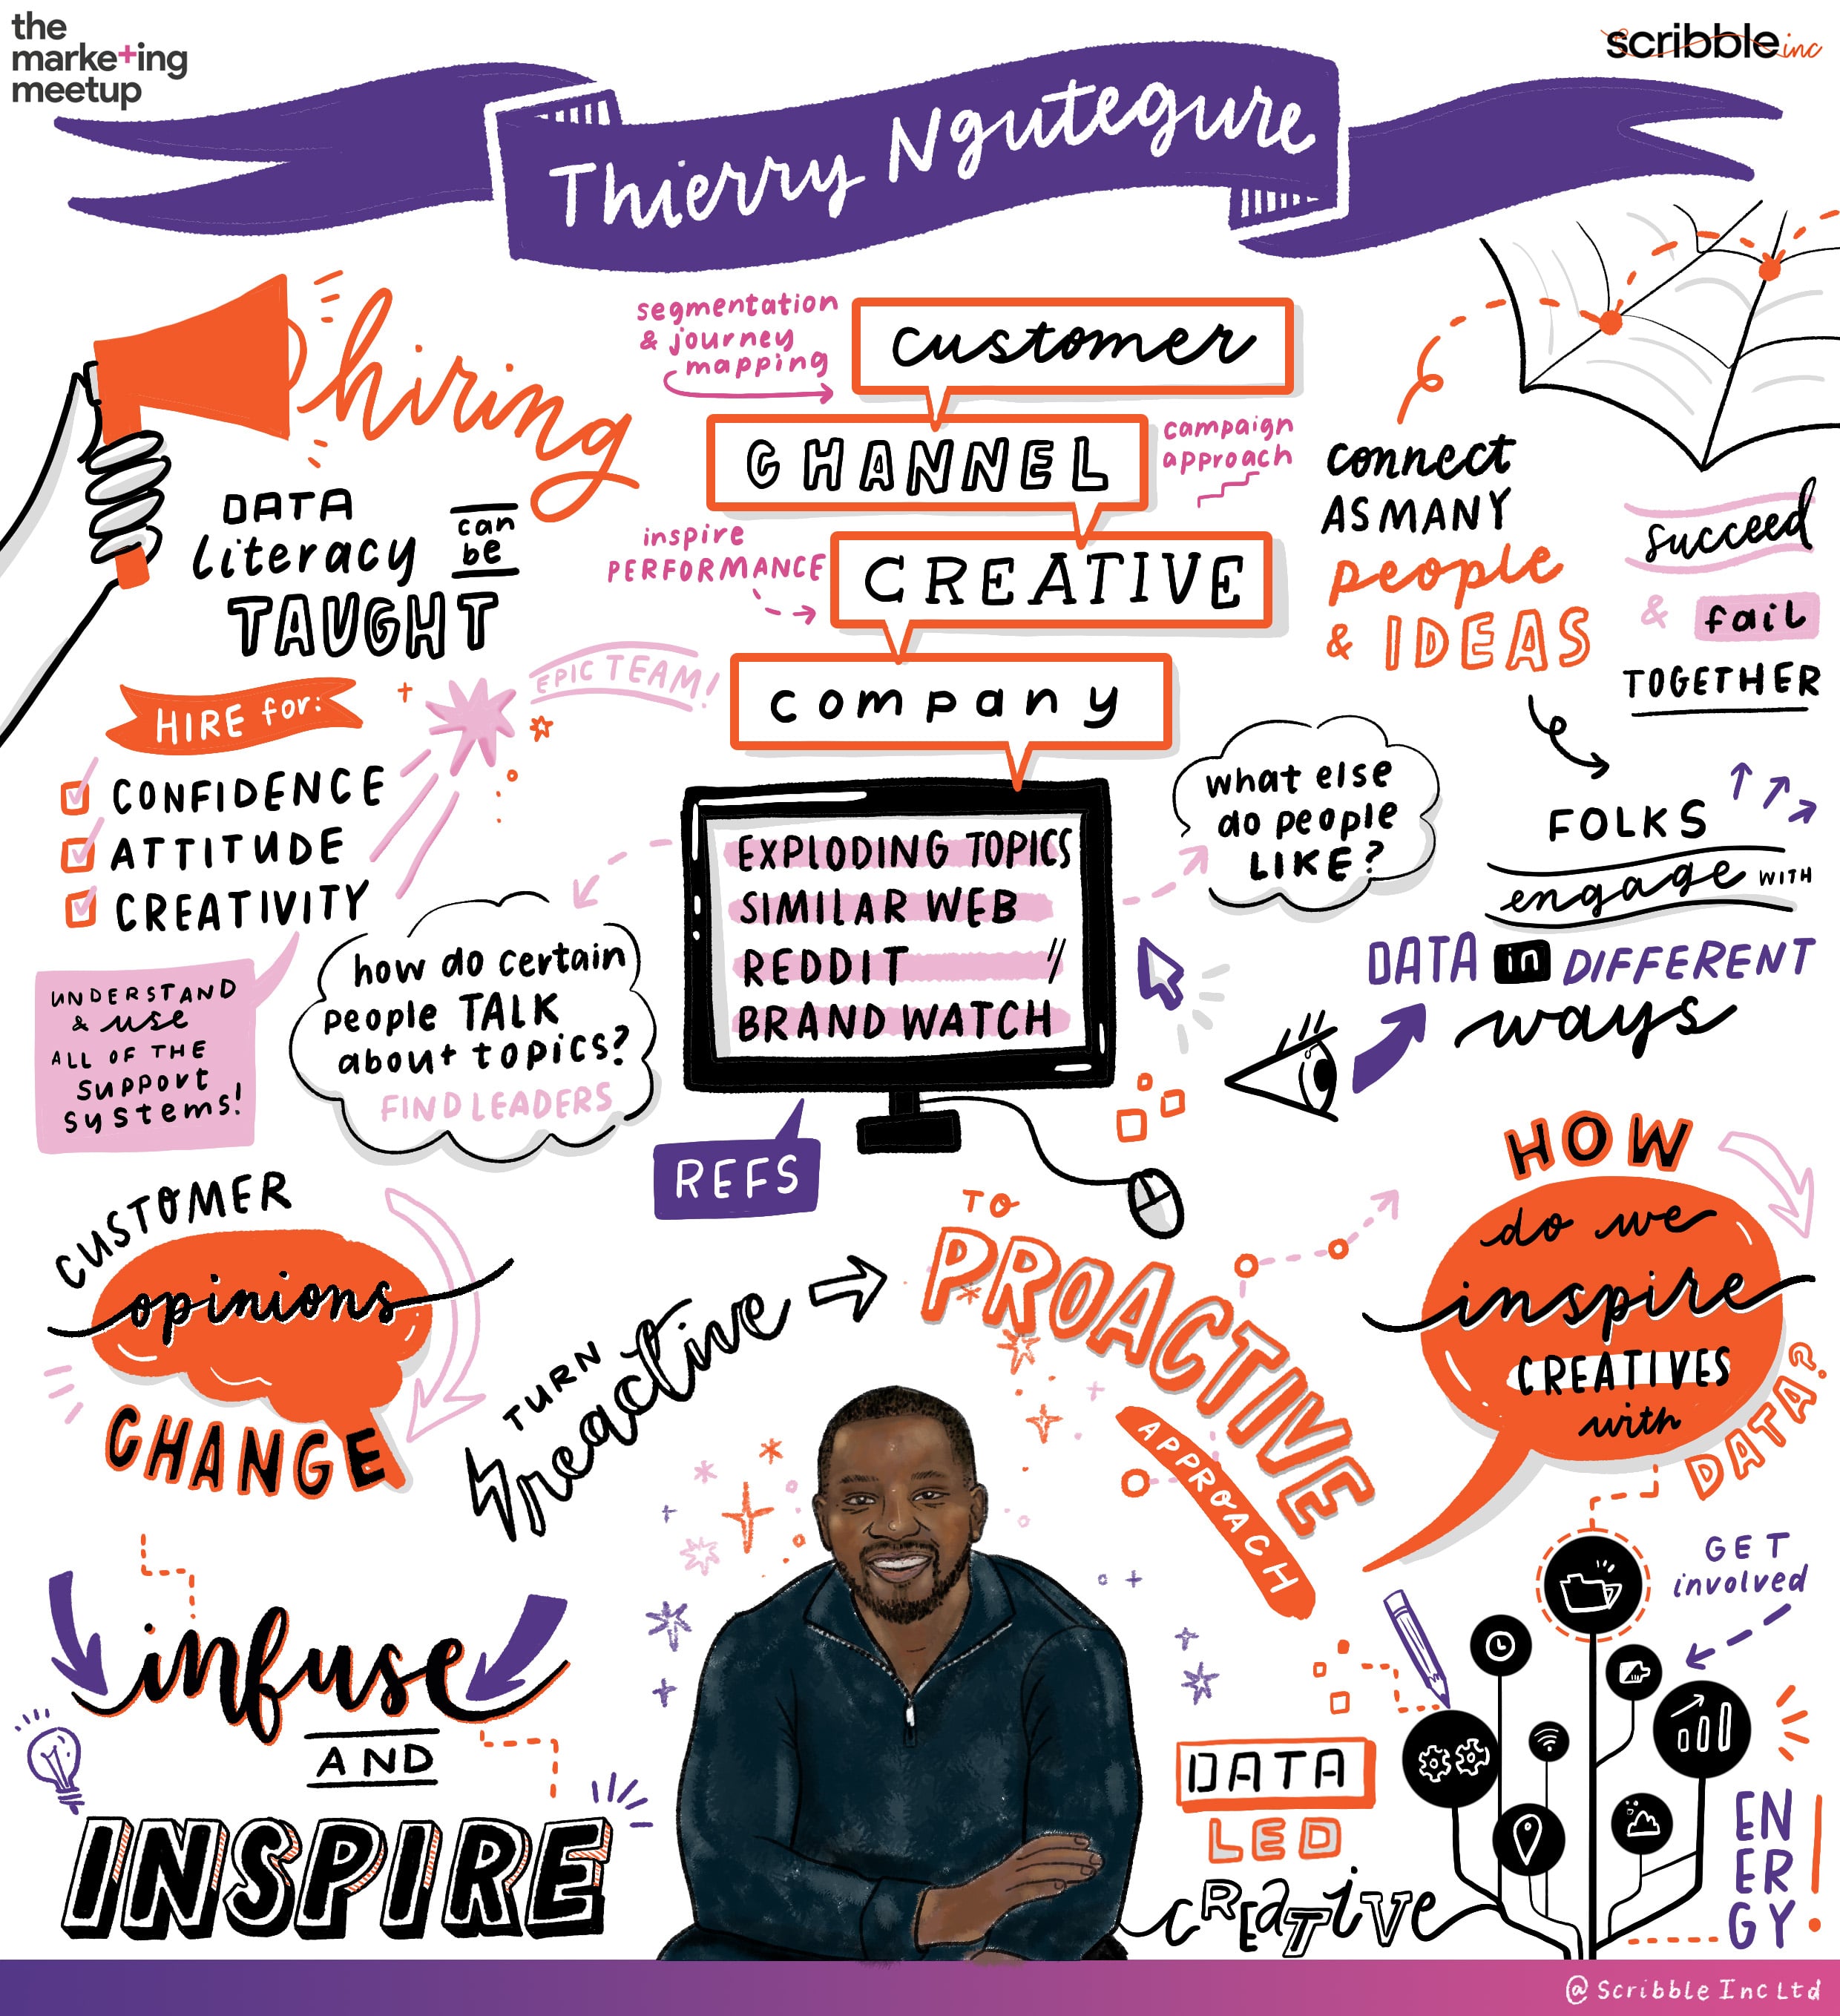 the
marke+ing
meetup
scribble inc
Thierry Ngutegure
hiring
DATA
literacy can
be
TAUGHT
HIRE for:
CONFIDENCE
ATTITUDE
CREATIVITY
EPIC TEAM!
UNDERSTAND
& use
ALL OF THE
SUPPORT
SYSTEMS!
segmentation
& journey
mapping
customer
CHANNEL
campaign
approach
inspire
PERFORMANCE
CREATIVE
company
EXPLODING TOPICS
SIMILAR WEB
REDDIT
BRAND WATCH
REFS
how do certain
people TALK
about topics?
FIND LEADERS
what else
do people
LIKE?
connect
AS MANY
people
& IDEAS
succeed
& fail
TOGETHER
FOLKS
engage WITH
DATA in DIFFERENT
ways
CUSTOMER
opinions
CHANGE
TURN
reactive
TO
PROACTIVE
APPROACH
HOW
do we
inspire
CREATIVES
with
DATA?
infuse
AND
INSPIRE
DATA
LED
CREATIVE
GET
involved
EN
ER
GY!
@ Scribble Inc Ltd